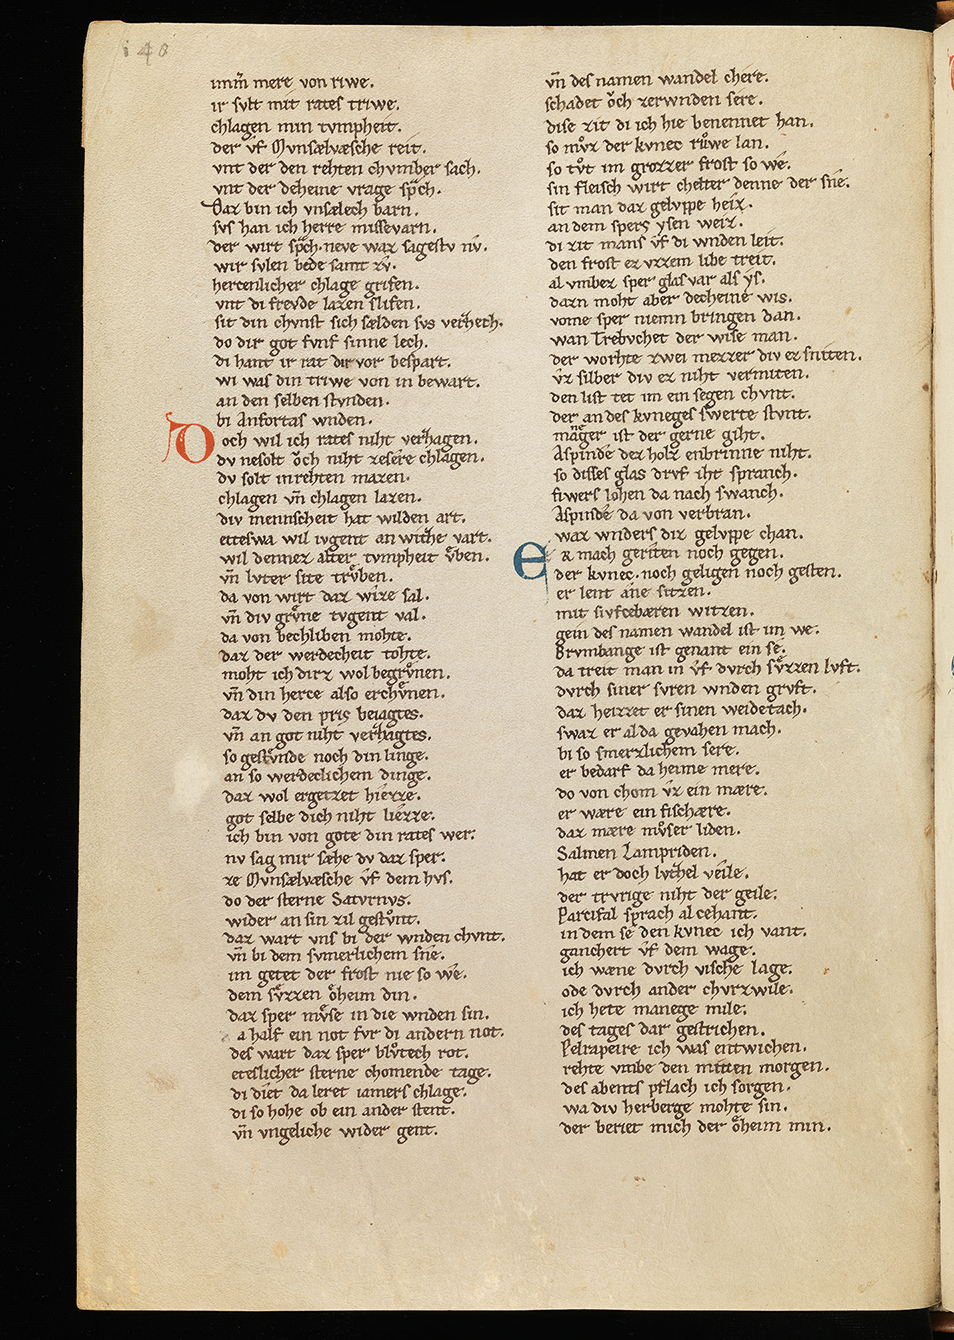 140
im̄m mere von riwe.
ir svlt mit rates triwe.
chlagen min tvmpheit.
der v̂f Mvnsælvæsche reit.
vnt der den rehten chvmber sach.
vnt der deheine vrage sp̄ch.
Daz bin ich vnsælech barn.
svs han ich herre missevarn.
der wirt sp̄ch. neve waz sagestv nv̂.
wir svlen bede samt zv̂.
hercenlicher chlage grifen.
vnt di frevde lazen slifen.
sit din chvnst sich sælden svs verzech.
do dir got fvnf sinne lech.
di hant ir rat dir vor bespart.
wi was din triwe von in bewart.
an den selben stvnden.
bi Anfortas wnden.
Doch wil ich rates niht verzagen.
dv nesolt ôch niht zesere chlagen.
dv solt inrehten mazen.
chlagen vn̄ chlagen lazen.
div mennischeit hat wilden art.
etteswa wil ivgent an witzhe vart.
wil dennez alter tvmpheit v̊ben.
vn̄ lvter site trv̊ben.
da von wirt daz wize sal.
vn̄ div grv̊ne tvgent val.
da von bechliben mohte.
daz der werdecheit tohte.
moht ich dirz wol begrv̊nen.
vn̄ din herce also erchv̊nen.
daz dv den pris beiagtes.
vn̄ an got niht verzagtes.
so gestv̊nde noch din linge.
an so werdeclichem dinge.
daz wol ergetzet hiezze.
got selbe dich niht liezze.
ich bin von gote din rates wer.
nv sag mir sæhe dv daz sper.
ze Mvnsælvæsche v̂f dem hvs.
do der sterne Satvrnvs.
wider an sin zil gestv̊nt.
daz wart vns bi der wnden chvnt.
vn̄ bi dem svmerlichem sne.
im getet der frost nie so we.
dem sv̊zzen ôheim din.
daz sper mv̊se in die wnden sin.
a half ein not fvr di andern not.
des wart daz sper blv̊tech rot.
eteslicher sterne chomende tage.
di diet da leret iamers chlage.
di so hohe ob ein ander stent.
vn̄ vngeliche wider gent.
vn̄ des namen wandel chere.
schadet ôch zerwnden sere.
dise zit di ich hie benennet han.
so mv̊z der kvnec rv̊we lan.
so tv̊t im grozzer frost so we.
sin fleisch wirt chelter denne der sne.
sit man daz gelvppe heiz.
an dem spers ysen weiz.
di zit mans v̂f di wnden leit.
den frost ez vzzem libe treit.
al vmbez sper glas var als ys.
dazn moht aber decheine wis.
vome sper niemn bringen dan.
wan Trebvchet der wise man.
der worhte zwei mezzer div ez sniten.
v̂z silber div ez niht vermiten.
den list tet im ein segen chvnt.
der an des kvneges swerte stvnt.
maneger ist der gerne giht.
Aspinde dez holz enbrinne niht.
so disses glas drvf iht spranch.
fiwers lohen da nach swanch.
Aspinde da von verbran.
waz wnders diz gelvppe chan.
Er mach geriten noch gegen.
der kvnec. noch geligen noch gesten.
er lent ane sitzen.
mit sivfcebæren witzen.
gein des namen wandel ist im we.
Brvmbange ist genant ein se.
da treit man in v̂f dvrch sv̊zzen lvft.
dvrch siner svren wnden grvft.
daz heizzet er sinen weidetach.
swaz er al da gevahen mach.
bi so smerzlichem sere.
er bedarf da heime mere.
do von chom v̂z ein mære.
er wære ein fischære.
daz mære mv̊ser liden.
Salmen Lampriden.
hat er doch lvtzhel veile.
der trvrige niht der geile.
Parcifal sprach al cehant.
in dem se den kvnec ich vant.
ganchert v̂f dem wage.
ich wæne dvrch vische lage.
ode dvrch ander chvrzwile.
ich hete manege mile.
des tages dar gestrichen.
Pelrapeire ich was entwichen.
rehte vmbe den mitten morgen.
des abents pflach ich sorgen.
wa div herberge mohte sin.
der beriet mich der ôheim min.